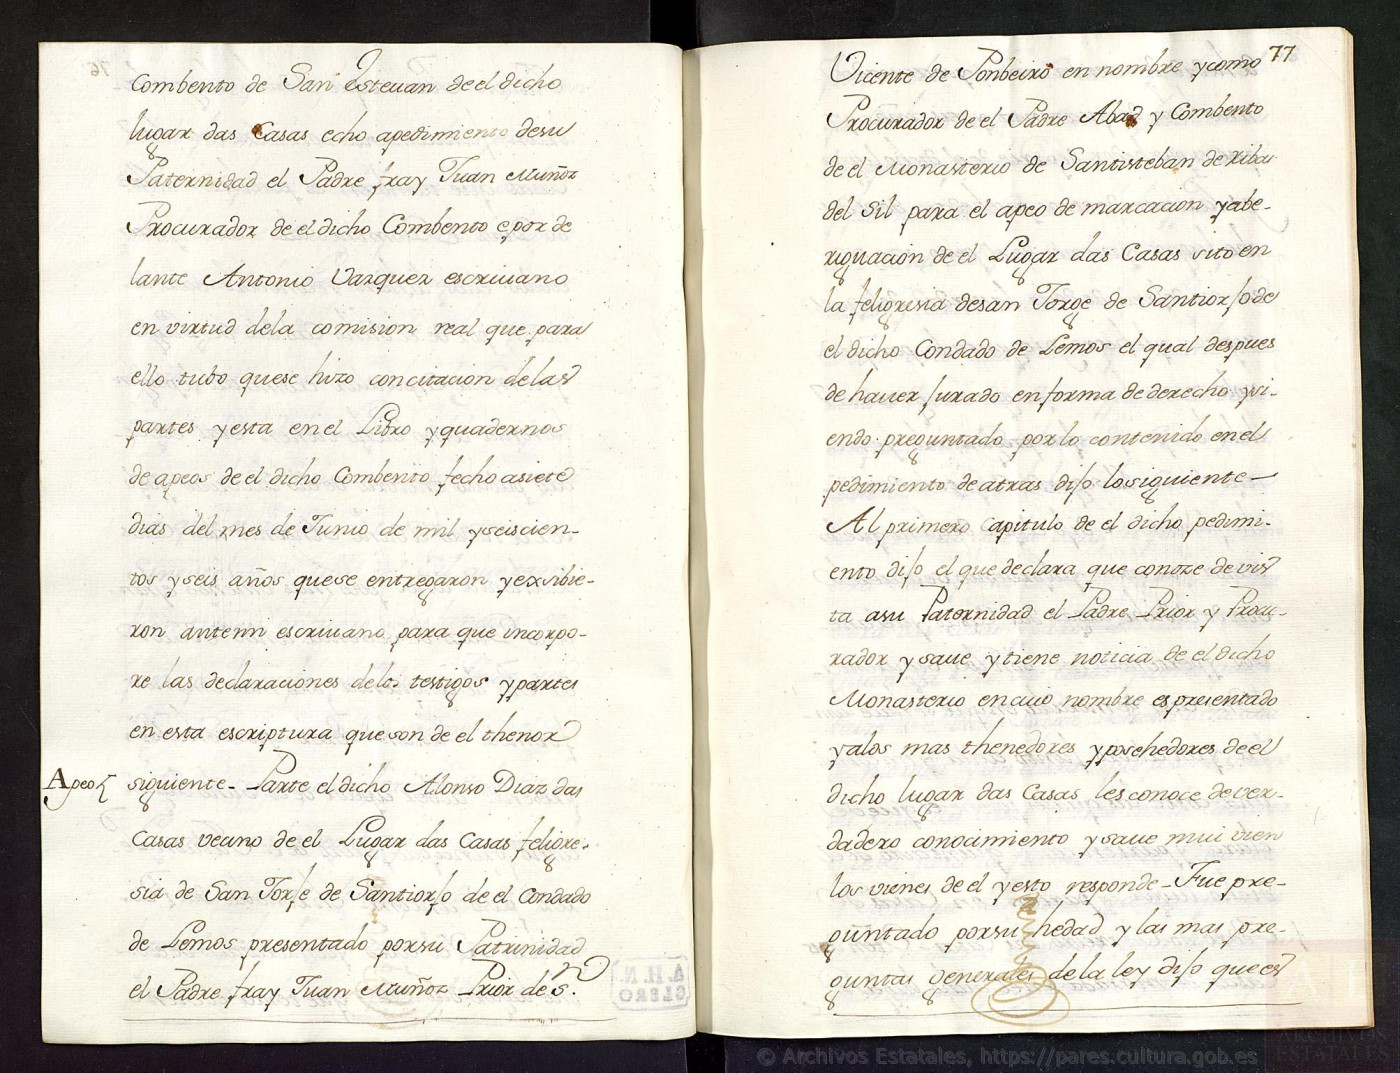 Combento de San Esteuan de el dicho
lugar das Casas echo apedimiento desu
Paternidad el Padre fray Juan Muñoz
Procurador de el dicho Combento e por de
lante Antonio Vazquez escriuano
en virtud dela comision real que para
ello tubo quese hizo con citacion de las
partes y esta en el Libro y quadernos
de apeos de el dicho Combento fecho a siete
dias del mes de Junio de mil y seiscien-
tos y seis años quese entregaron y exsibie-
ron antemi escriuano para que incorpo-
re las declaraciones delos testigos y partes
en esta escriptura que son de el thenor
Apeo
siguiente - Parte el dicho Alonso Diaz das
Casas vecino de el Lugar das Casas feligre-
sia de San Jorje de Santiorjo de el Condado
de Lemos presentado por su Patrinidad
el Padre fray Juan Muñoz Prior de S.
A.H.N.
CLERO
77
Vicente de Ponbeiro en nombre y como
Procurador de el Padre Abad y Combento
de el Monasterio de Santisteban de ribas
del Sil para el apeo demarcacion y abe-
riguacion de el Lugar das Casas sito en
la feligresia de san Jorge de Santiorjo de
el dicho Condado de Lemos el qual despues
de hauer jurado en forma de derecho y si-
endo preguntado por lo contenido en el
pedimiento de atras dijo lo siguiente -
Al primero Capitulo de el dicho pedimi-
ento dijo el que declara que conoze de vis
ta a su Paternidad el Padre Prior y Procu-
rador y saue y tiene noticia de el dicho
Monasterio en cuio nombre es presentado
y alos mas thenedores y posehedores de el
dicho lugar das Casas les conoce de ver-
dadero conocimiento y saue mui bien
los vienes de el y esto responde - Fue pre-
guntado por su hedad y las mas pre-
guntas generales de la ley dijo que es
© Archivos Estatales, https://pares.cultura.gob.es
ARCHIVOS
ESTATALES